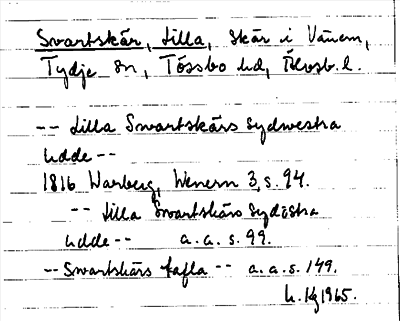 Svartskär, Lilla, skär i Vänern,
Tydje sn, Tössbo hd, Älvsb. l.
-- Lilla Svartskärs Sydwestra
Udde --
1816 Warberg, Wenern 3, s. 94.
-- Lilla Svartskärs Sydöstra
Udde -- a. a. s. 99.
-- Svartskärs tafla -- a. a. s. 149.
1965.